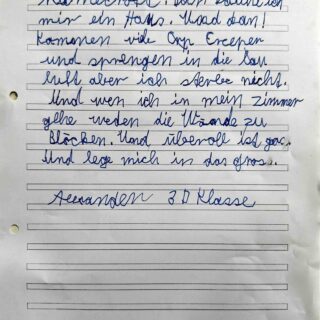 mir ein Haus. Und dan!
Kommen vile Crp Ereeper
und sprengen in die Lau
luft aber ich sterbe nicht.
Und wen ich in mein zimmer
gehe werden die Wände zu
Blöcken. Und überall ist gras.
Und lege mich in das gras.
Alexander 3 D Klasse